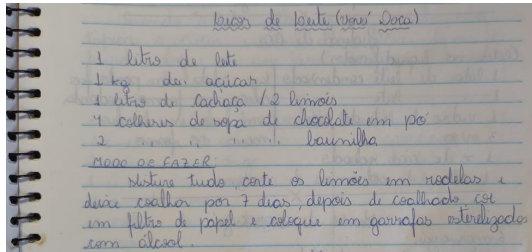 Licor de Leite (vovó Doca)
1 litro de leite
1 kg de açúcar
1 litro de cachaça / 2 limões
4 colheres de sopa de chocolate em pó
2 " " " baunilha
MODO DE FAZER:
Misture tudo, corte os limões em rodelas e
deixe coalhar por 7 dias, depois de coalhado, coe
em filtro de papel e coloque em garrafas esterelizados
com álcool.